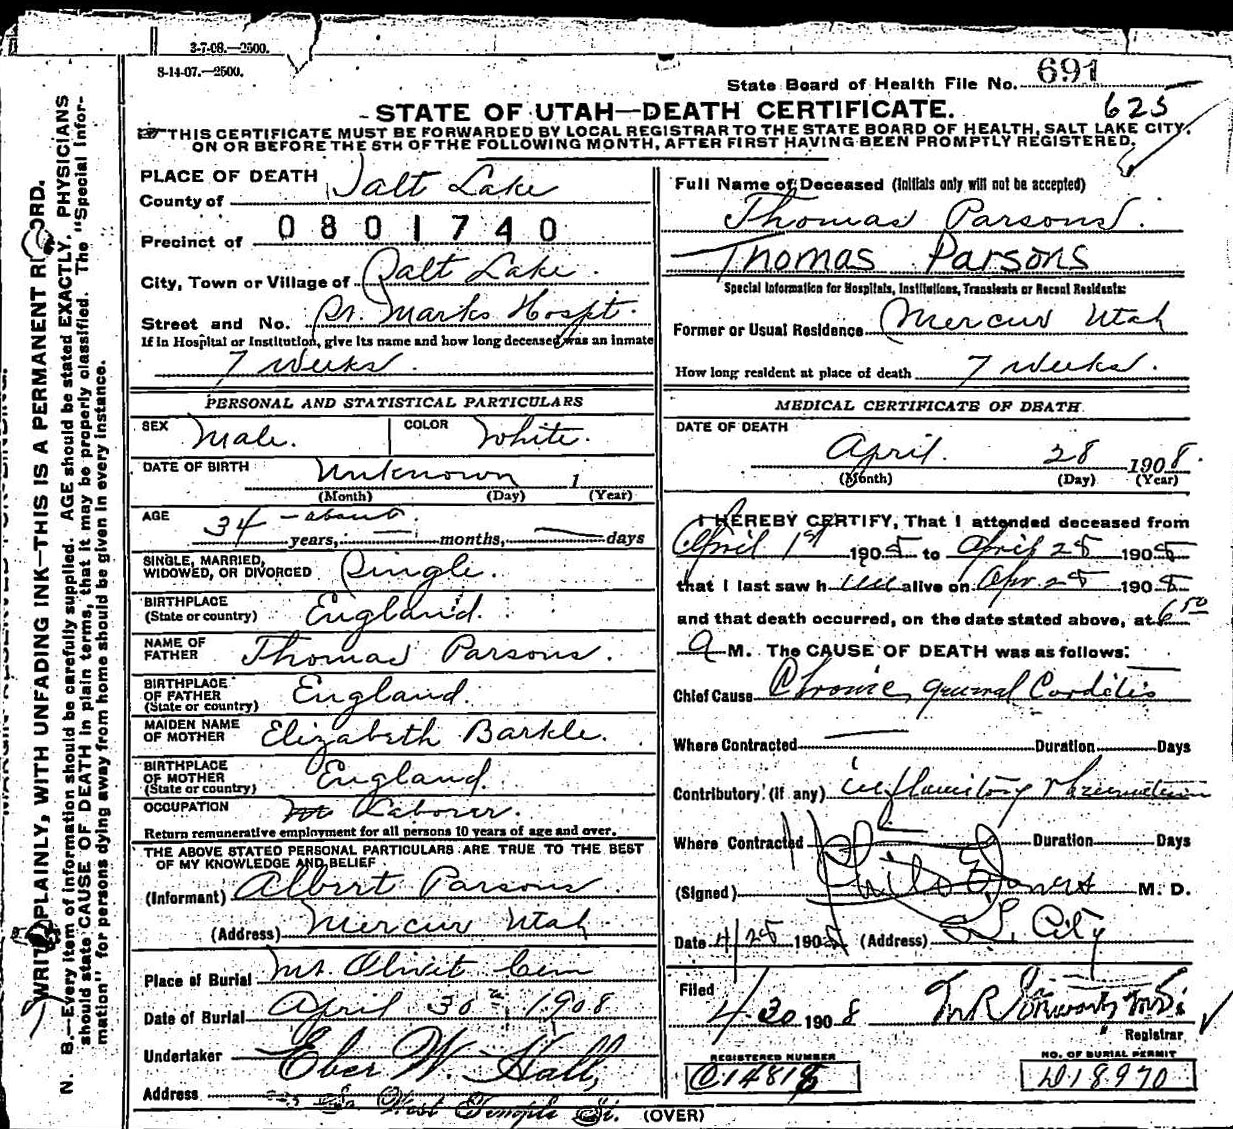 3-7-08.—2500.
8-14-07.—2500.
State Board of Health File No. 691
625
STATE OF UTAH—DEATH CERTIFICATE.
THIS CERTIFICATE MUST BE FORWARDED BY LOCAL REGISTRAR TO THE STATE BOARD OF HEALTH, SALT LAKE CITY,
ON OR BEFORE THE 5TH OF THE FOLLOWING MONTH, AFTER FIRST HAVING BEEN PROMPTLY REGISTERED.
PLACE OF DEATH
County of Salt Lake
Precinct of 0801740
City, Town or Village of Salt Lake.
Street and No. St. Marks Hospt.
If in Hospital or Institution, give its name and how long deceased was an inmate
7 weeks.
PERSONAL AND STATISTICAL PARTICULARS
SEX Male. COLOR White.
DATE OF BIRTH Unknown 1
(Month) (Day) (Year)
AGE 34 - about
years, — months, — days
SINGLE, MARRIED,
WIDOWED, OR DIVORCED Single.
BIRTHPLACE
(State or country) England.
NAME OF
FATHER Thomas Parsons.
BIRTHPLACE
OF FATHER
(State or country) England.
MAIDEN NAME
OF MOTHER Elizabeth Barkle.
BIRTHPLACE
OF MOTHER
(State or country) England.
OCCUPATION Laborer.
Return remunerative employment for all persons 10 years of age and over.
THE ABOVE STATED PERSONAL PARTICULARS ARE TRUE TO THE BEST
OF MY KNOWLEDGE AND BELIEF
(Informant) Albert Parsons
(Address) Mercur Utah
Place of Burial Mt. Olivet Cem
Date of Burial April 30th 1908
Undertaker Eber W. Hall,
Address So West Temple St.
Full Name of Deceased (Initials only will not be accepted)
Thomas Parsons.
Thomas Parsons
Special Information for Hospitals, Institutions, Transients or Recent Residents:
Former or Usual Residence Mercur Utah
How long resident at place of death 7 weeks.
MEDICAL CERTIFICATE OF DEATH.
DATE OF DEATH
April. 28 1908.
(Month) (Day) (Year)
I HEREBY CERTIFY, That I attended deceased from
April 1st 1908 to April 28 1908
that I last saw h im alive on Apr 28 1908
and that death occurred, on the date stated above, at 6 50
A M. The CAUSE OF DEATH was as follows:
Chief Cause Chronic general Carditis
Where Contracted — Duration Days
Contributory (if any) inflamitory rheumatism
Where Contracted Duration Days
(Signed) M. D.
Date 4/28 1908 (Address) S. L. City
Filed
4-30 1908
Registrar
REGISTERED NUMBER
NO. OF BURIAL PERMIT
C14818
D18970
(OVER)
WRITE PLAINLY, WITH UNFADING INK—THIS IS A PERMANENT RECORD.
N. B.—Every item of information should be carefully supplied. AGE should be stated EXACTLY. PHYSICIANS
should state CAUSE OF DEATH in plain terms, that it may be properly classified. The "Special Infor-
mation" for persons dying away from home should be given in every instance.